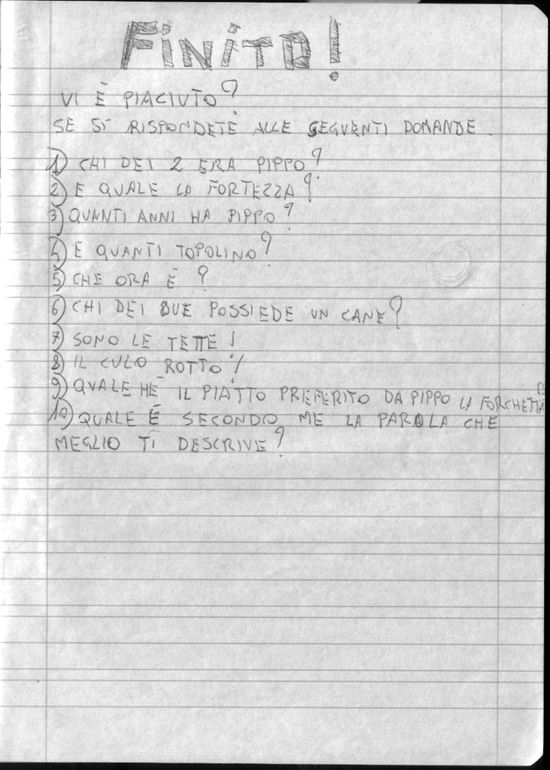 FINITO!
VI È PIACIUTO?
SE SI RISPONDETE ALLE SEGUENTI DOMANDE.
1) CHI DEI 2 ERA PIPPO?
2) E QUALE LA FORTEZZA?
3) QUANTI ANNI HA PIPPO?
4) E QUANTI TOPOLINO?
5) CHE ORA È?
6) CHI DEI DUE POSSIEDE UN CANE?
7) SONO LE TETTE!
8) IL CULO ROTTO!
9) QUALE HE IL PIATTO PREFERITO DA PIPPO LA FORCHETTA
10) QUALE È SECONDO ME LA PAROLA CHE
MEGLIO TI DESCRIVE?